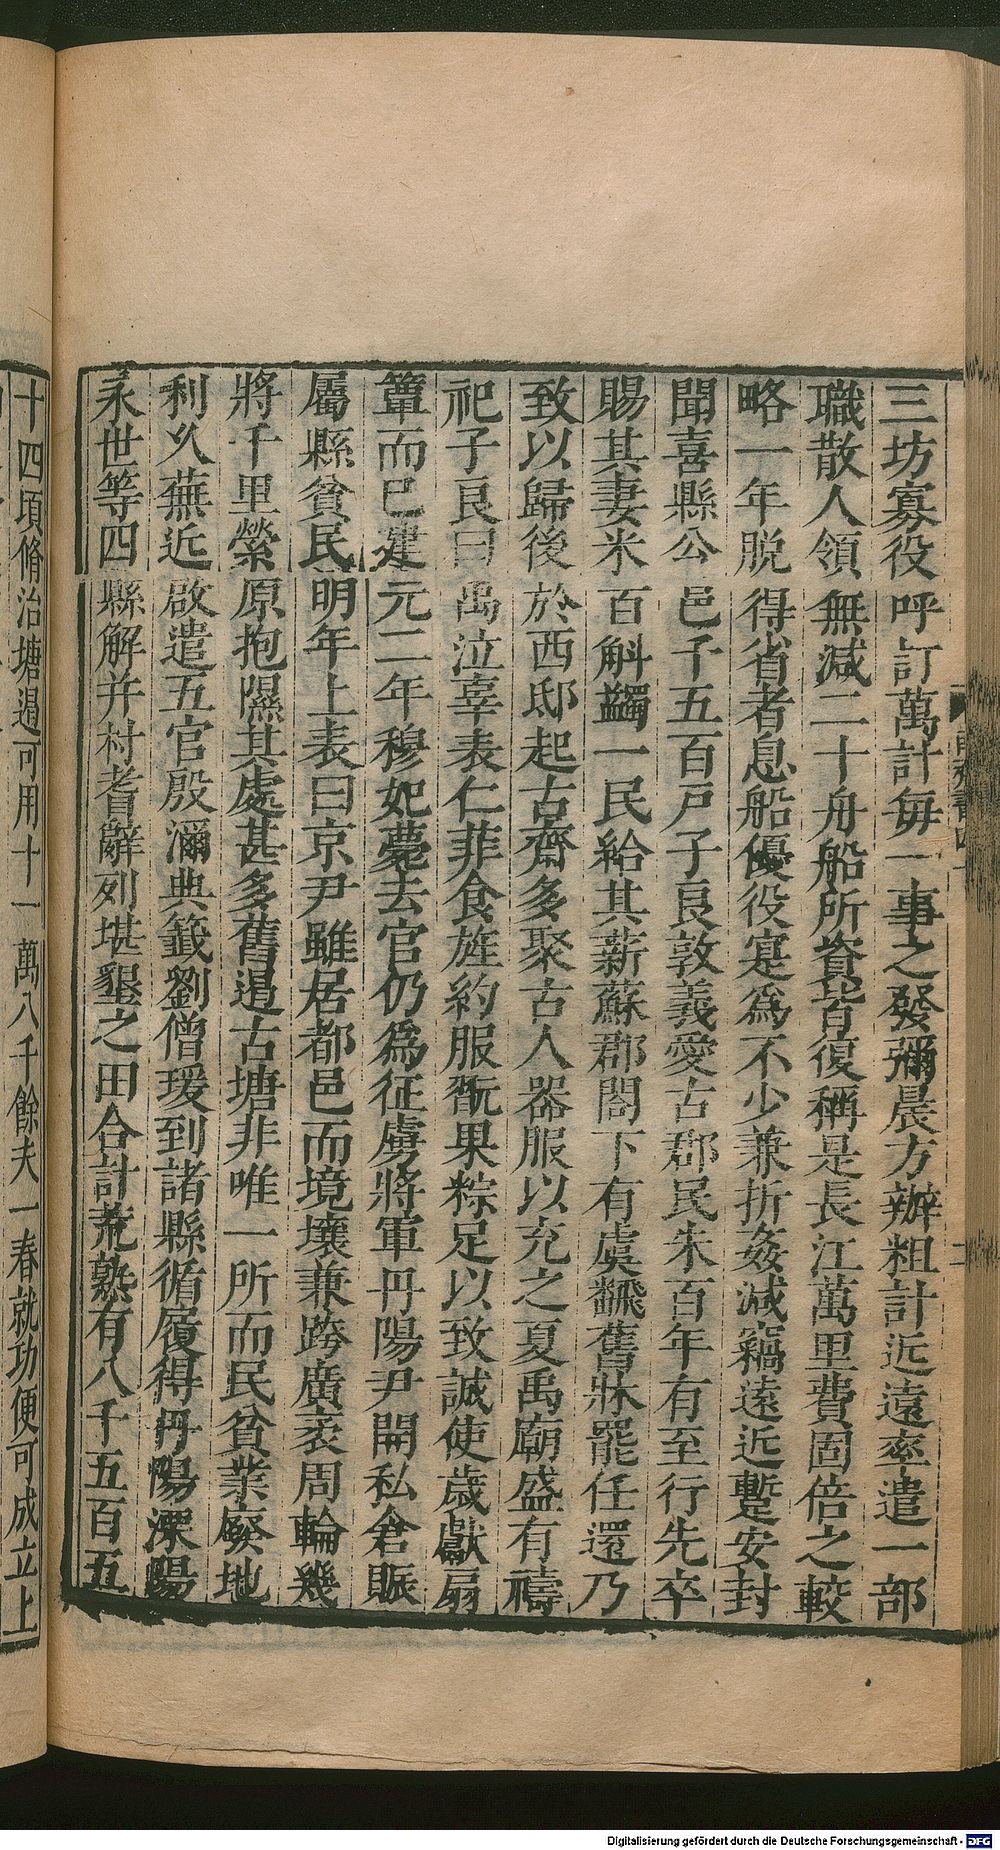 三坊寡役呼訂萬計每一事之發彌晨方辦粗計近遠率遣一部
職散人領無減二十舟船所資皆復稱是長江萬里費固倍之較
略一年脫得省者息船優役寔為不少兼折姦減竊遠近蹔安封
聞喜縣公邑千五百戶子良敦義愛古郡民朱百年有至行先卒
賜其妻米百斛蠲一民給其薪蘇郡閤下有虞飜舊牀罷任還乃
致以歸後於西邸起古齋多聚古人器服以充之夏禹廟盛有禱
祀子良曰禹泣辜表仁菲食旌約服翫果粽足以致誠使歲獻扇
簟而已建元二年穆妃薨去官仍為征虜將軍丹陽尹開私倉賑
屬縣貧民明年上表曰京尹雖居都邑而境壤兼跨廣袤周輪幾
將千里縈原抱隰其處甚多舊遏古塘非唯一所而民貧業廢地
利久蕪近啟遣五官殷濔典籤劉僧瑗到諸縣循履得丹陽溧陽
永世等四縣解并村耆辭列堪墾之田合計荒熟有八千五百五
十四頃脩治塘遏可用十一萬八千餘夫一春就功便可成立上
Digitalisierung gefördert durch die Deutsche Forschungsgemeinschaft - DFG